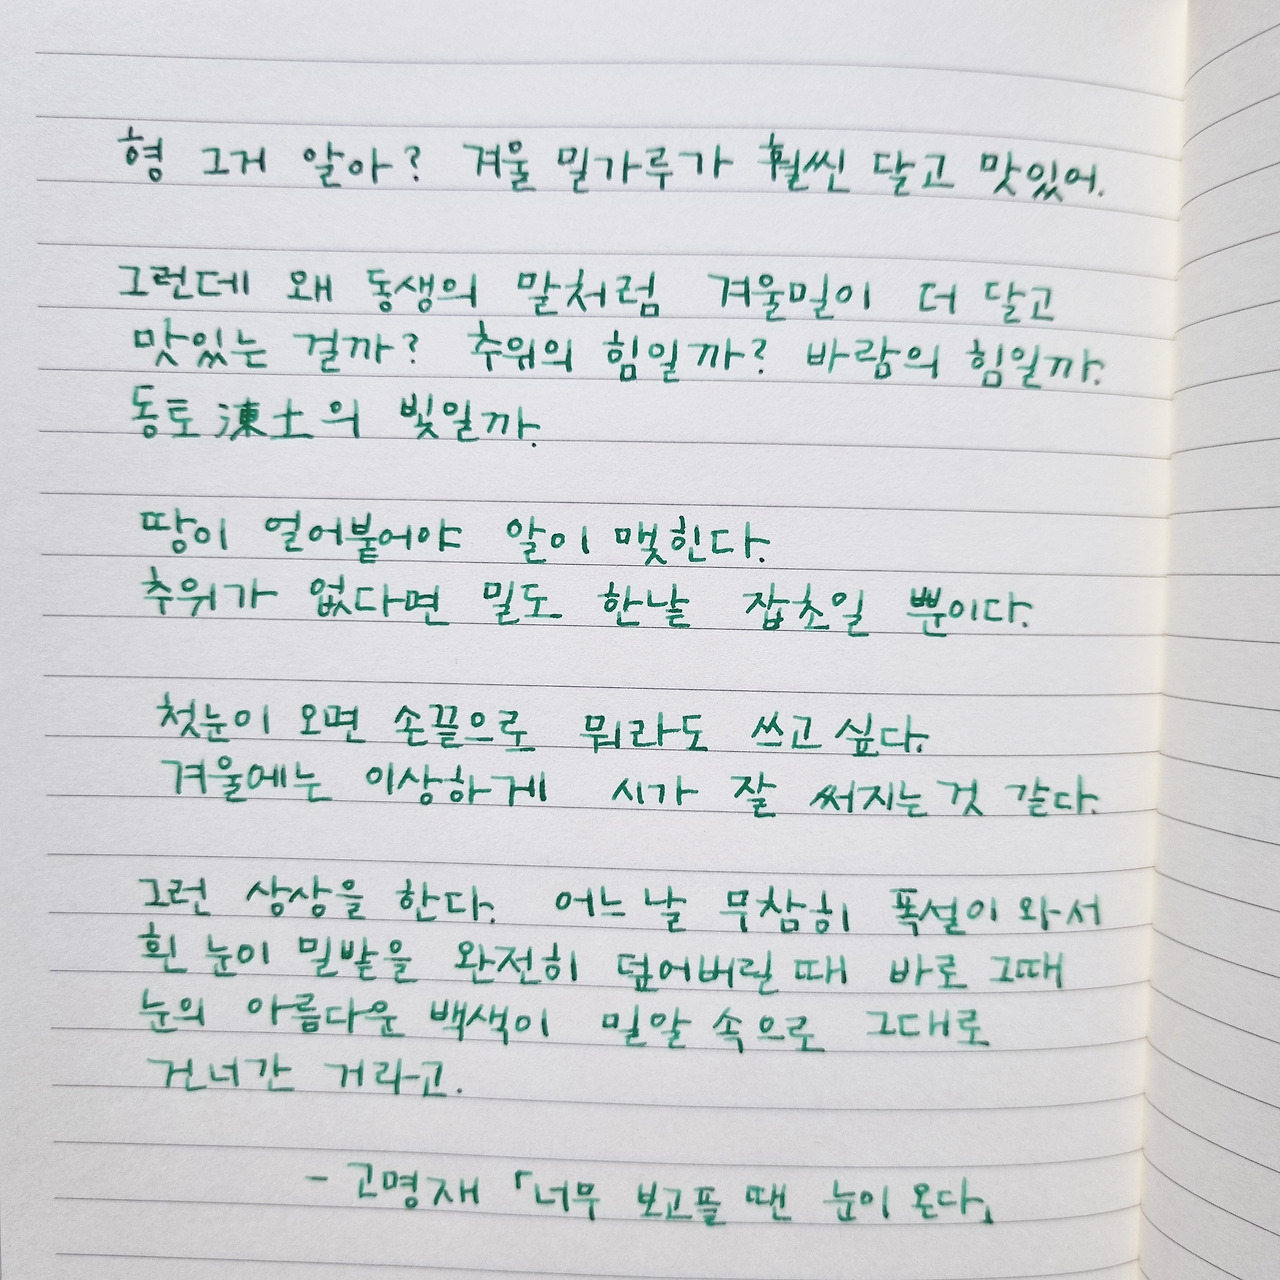 형 그거 알아? 겨울 밀가루가 훨씬 달고 맛있어.
그런데 왜 동생의 말처럼 겨울밀이 더 달고
맛있는 걸까? 추위의 힘일까? 바람의 힘일까.
동토凍土의 빛일까.
땅이 얼어붙어야 알이 맺힌다.
추위가 없다면 밀도 한낱 잡초일 뿐이다.
첫눈이 오면 손끝으로 뭐라도 쓰고 싶다.
겨울에는 이상하게 시가 잘 써지는 것 같다.
그런 상상을 한다. 어느 날 무참히 폭설이 와서
흰 눈이 밀밭을 완전히 덮어버릴 때 바로 그때
눈의 아름다운 백색이 밀알 속으로 그대로
건너간 거라고.
- 고명재 「너무 보고플 땐 눈이 온다」